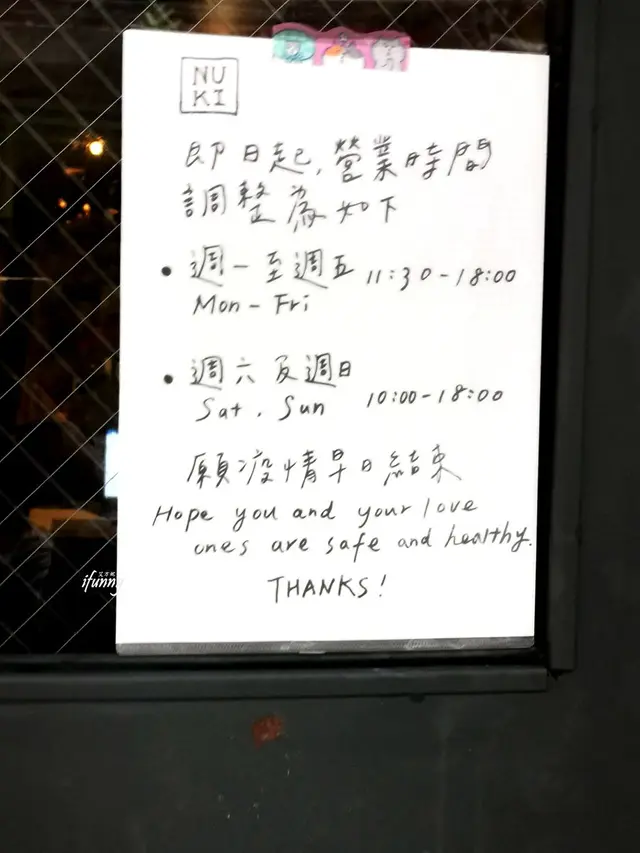 NU
KI
即日起,營業時間
調整為如下
• 週一至週五 11:30-18:00
Mon-Fri
• 週六及週日
Sat. Sun 10:00-18:00
願疫情早日結束
Hope you and your love
ones are safe and healthy.
THANKS!
ifunny